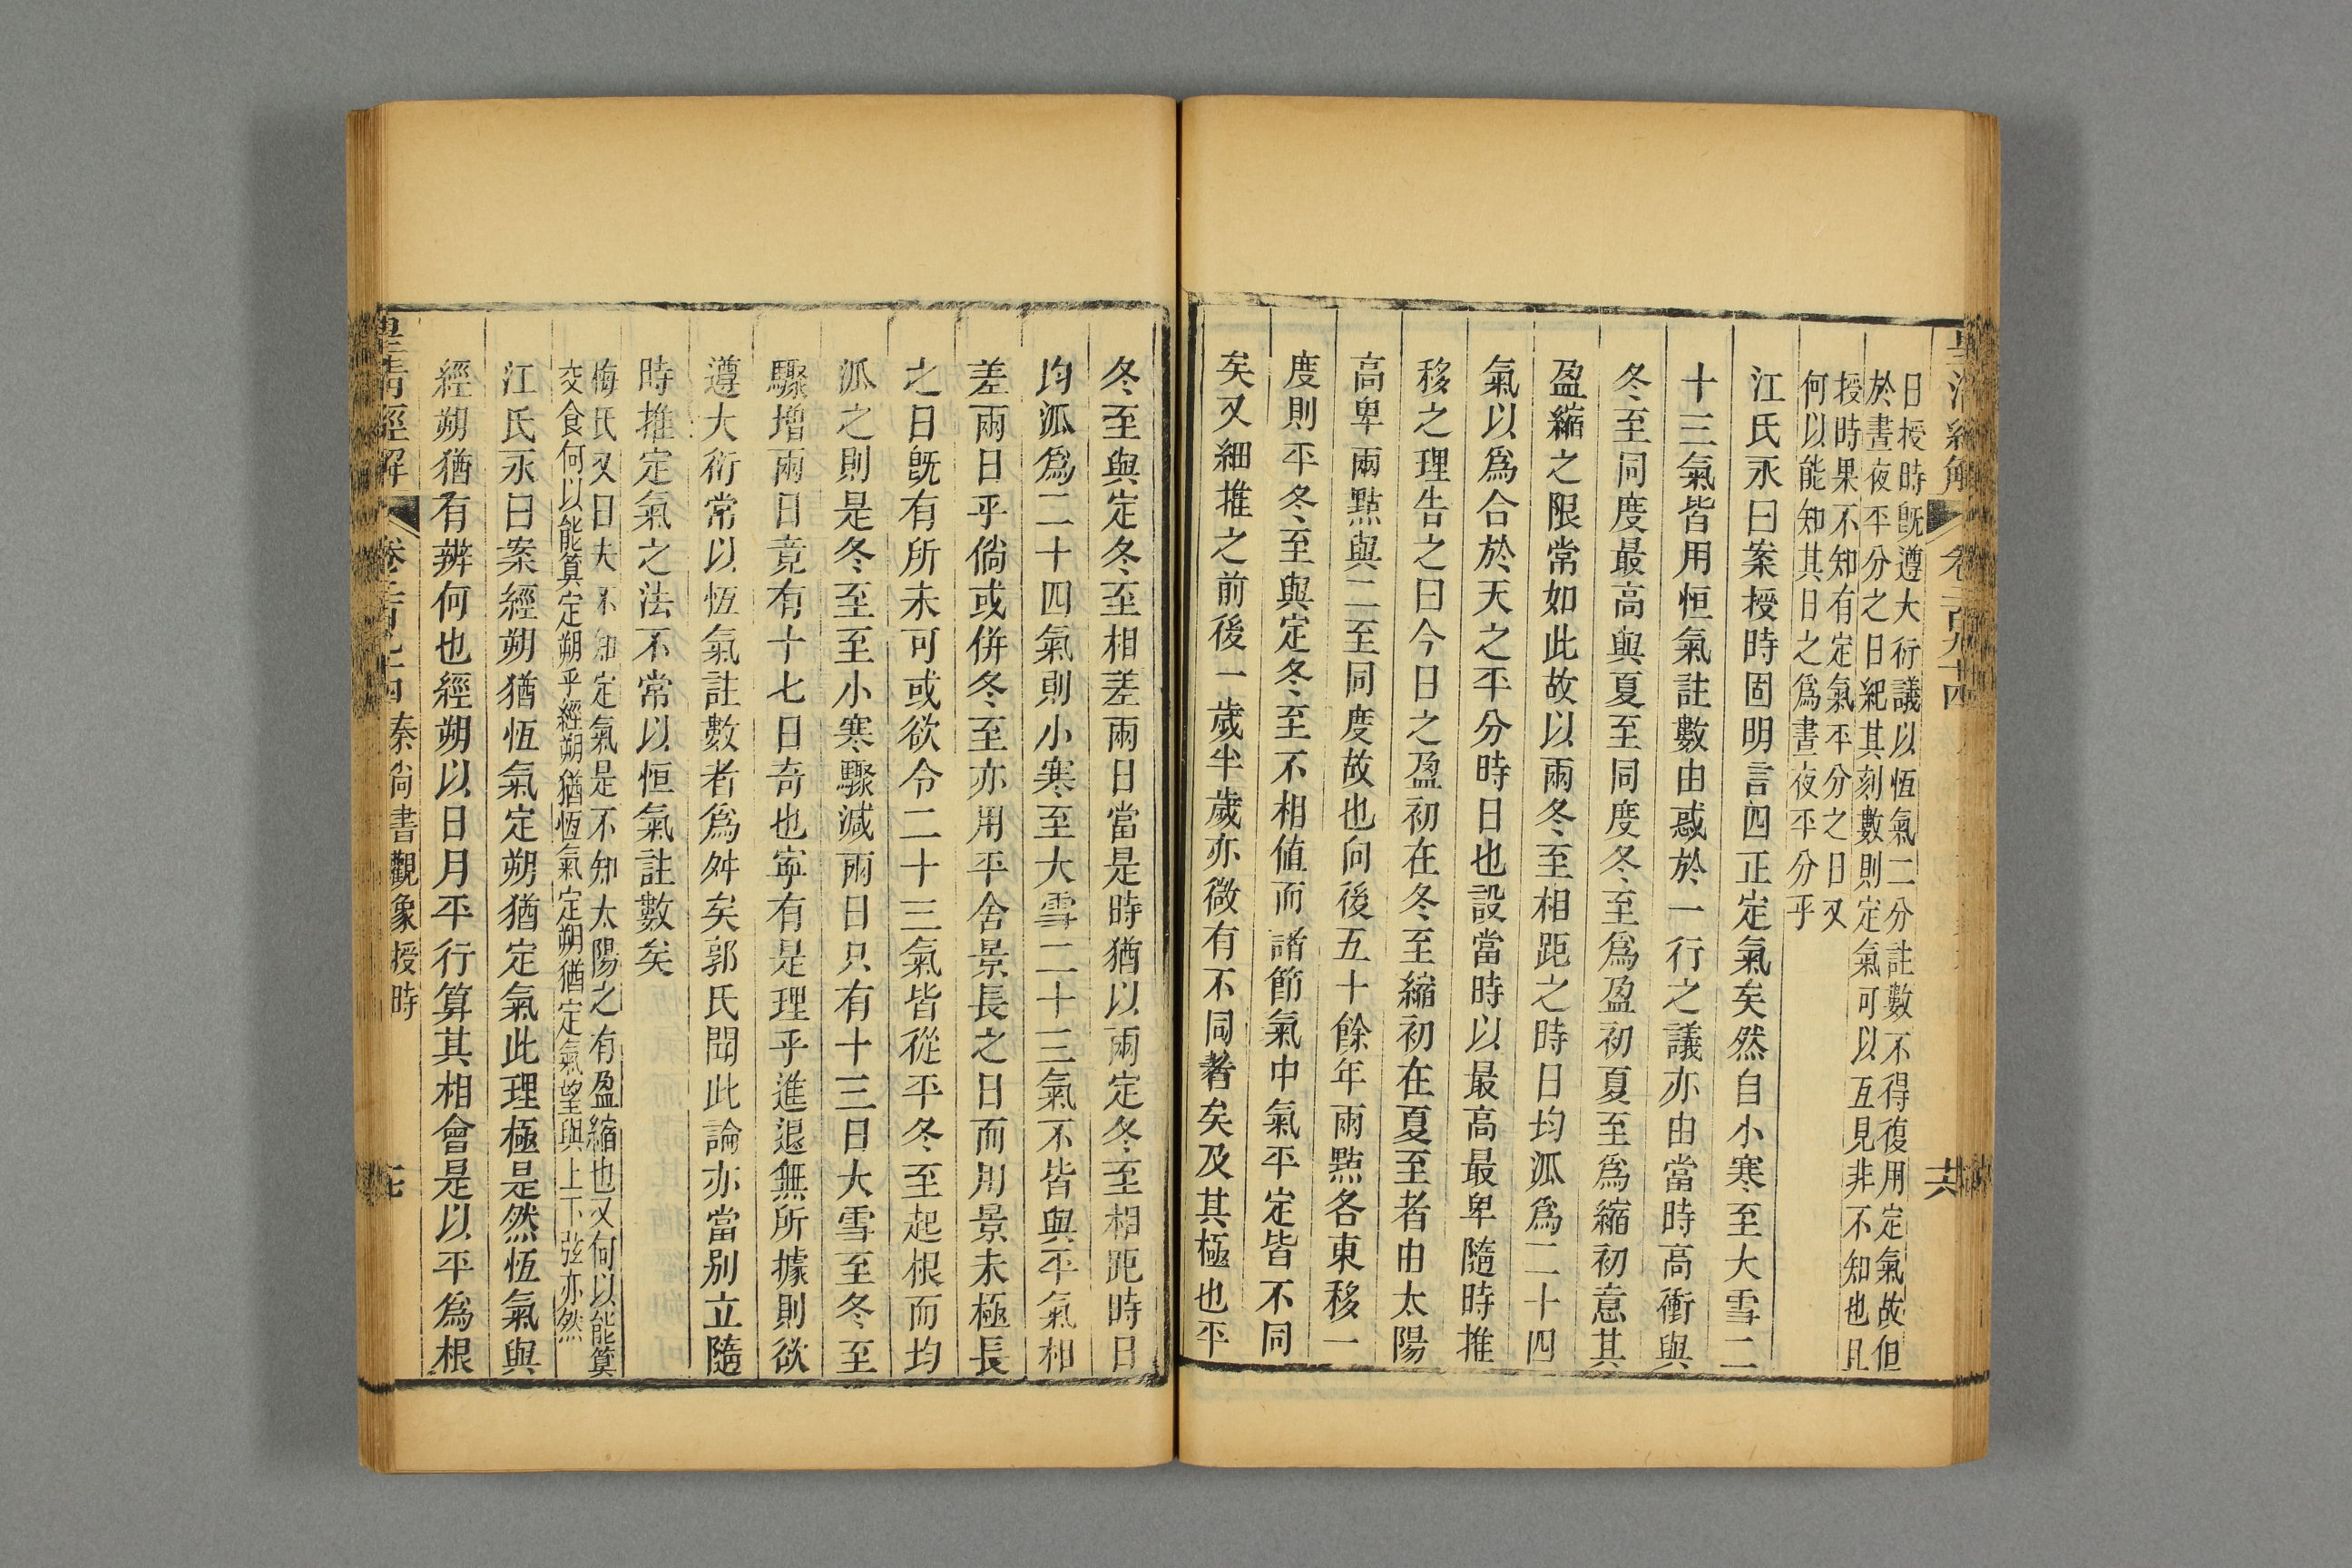 皇清經解 卷二百九十四 共
日授時旣遵大衍議以恆氣二分註數不得復用定氣故但
於晝夜平分之日紀其刻數則定氣可以互見非不知也且
授時果不知有定氣平分之日又
何以能知其日之爲晝夜平分乎
江氏永曰案授時固明言四正定氣矣然自小寒至大雪二
十三氣皆用恒氣註數由惑於一行之議亦由當時高衝與
冬至同度最高與夏至同度冬至爲盈初夏至爲縮初意其
盈縮之限常如此故以兩冬至相距之時日均派爲二十四
氣以爲合於天之平分時日也設當時以最高最卑隨時推
移之理告之曰今日之盈初在冬至縮初在夏至者由太陽
高卑兩點與二至同度故也向後五十餘年兩點各東移一
度則平冬至與定冬至不相値而諸節氣中氣平定皆不同
矣又細推之前後一歲半歲亦微有不同者矣及其極也平
冬至與定冬至相差兩日當是時猶以兩定冬至相距時日
均派爲二十四氣則小寒至大雪二十三氣不皆與平氣相
差兩日乎倘或併冬至亦用平舍景長之日而用景未極長
之日旣有所未可或欲令二十三氣皆從平冬至起根而均
派之則是冬至至小寒驟減兩日只有十三日大雪至冬至
驟增兩日竟有十七日奇也寧有是理乎進退無所據則欲
遵大衍常以恆氣註數者爲舛矣郭氏聞此論亦當别立隨
時推定氣之法不常以恒氣註數矣
梅氏又曰夫不知定氣是不知太陽之有盈縮也又何以能算
交食何以能算定朔乎經朔猶恆氣定朔猶定氣望與上下弦亦然
江氏永曰案經朔猶恆氣定朔猶定氣此理極是然恆氣與
經朔猶有辨何也經朔以日月平行算其相會是以平爲根
皇清經解 卷二百九十四 秦尙書觀象授時 七